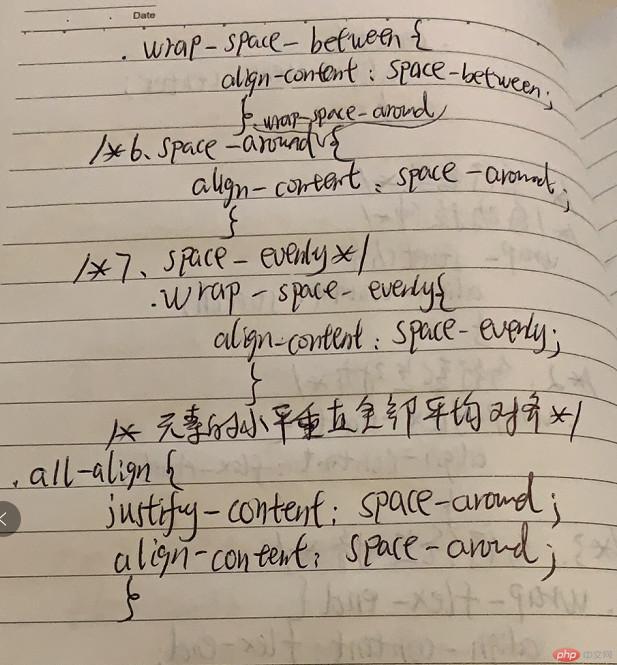 Date
.wrap-space-between{
align-content:space-between;
}.wrap-space-around
/*6、space-around{
align-content:space-around;
}
/*7、space-evenly*/
.wrap-space-evenly{
align-content:space-evenly;
}
/*元素的水平垂直全部平均对齐*/
.all-align{
justify-content:space-around;
align-content:space-aroud;
}
php 中文网